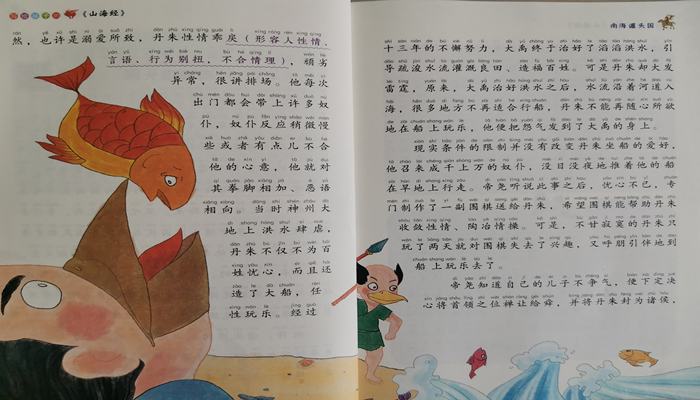 《山海经》
然，也许是溺爱所致，丹朱性情乖戾（形容人性情、
言语、行为别扭，不合情理），顽劣
异常，很讲排场。他每次
出门都会带上许多奴
仆，奴仆反应稍微慢
些或者有点儿不合
他的心意，他就对
其拳脚相加、恶语
相向。当时神州大
地上洪水肆虐，
丹朱不仅不为百
姓忧心，而且还
造了大船，任
性玩乐。经过
南海 讙头国
十三年的不懈努力，大禹终于治好了滔滔洪水，引
导疏浚水流灌溉良田、造福百姓。可是丹朱却大发
雷霆，原来，大禹治好洪水之后，水流沿着河道入
海，很多地方不再适合行船，丹朱不能再随心所欲
地在船上玩乐，他便把怨气发到了大禹的身上。
现实条件的限制并没有改变丹朱坐船的爱好，
他召来成千上万的奴仆，没日没夜地推着他的船
在旱地上行走。帝尧听说此事之后，忧心不已，专
门制作了一副围棋送给丹朱，希望围棋能帮助丹朱
收敛性情、陶冶情操。可是，不甘寂寞的丹朱只
玩了两天就对围棋失去了兴趣，又呼朋引伴地到
船上玩乐去了。
帝尧知道自己的儿子不争气，便下定决
心将首领之位禅让给舜，并将丹朱封为诸侯，